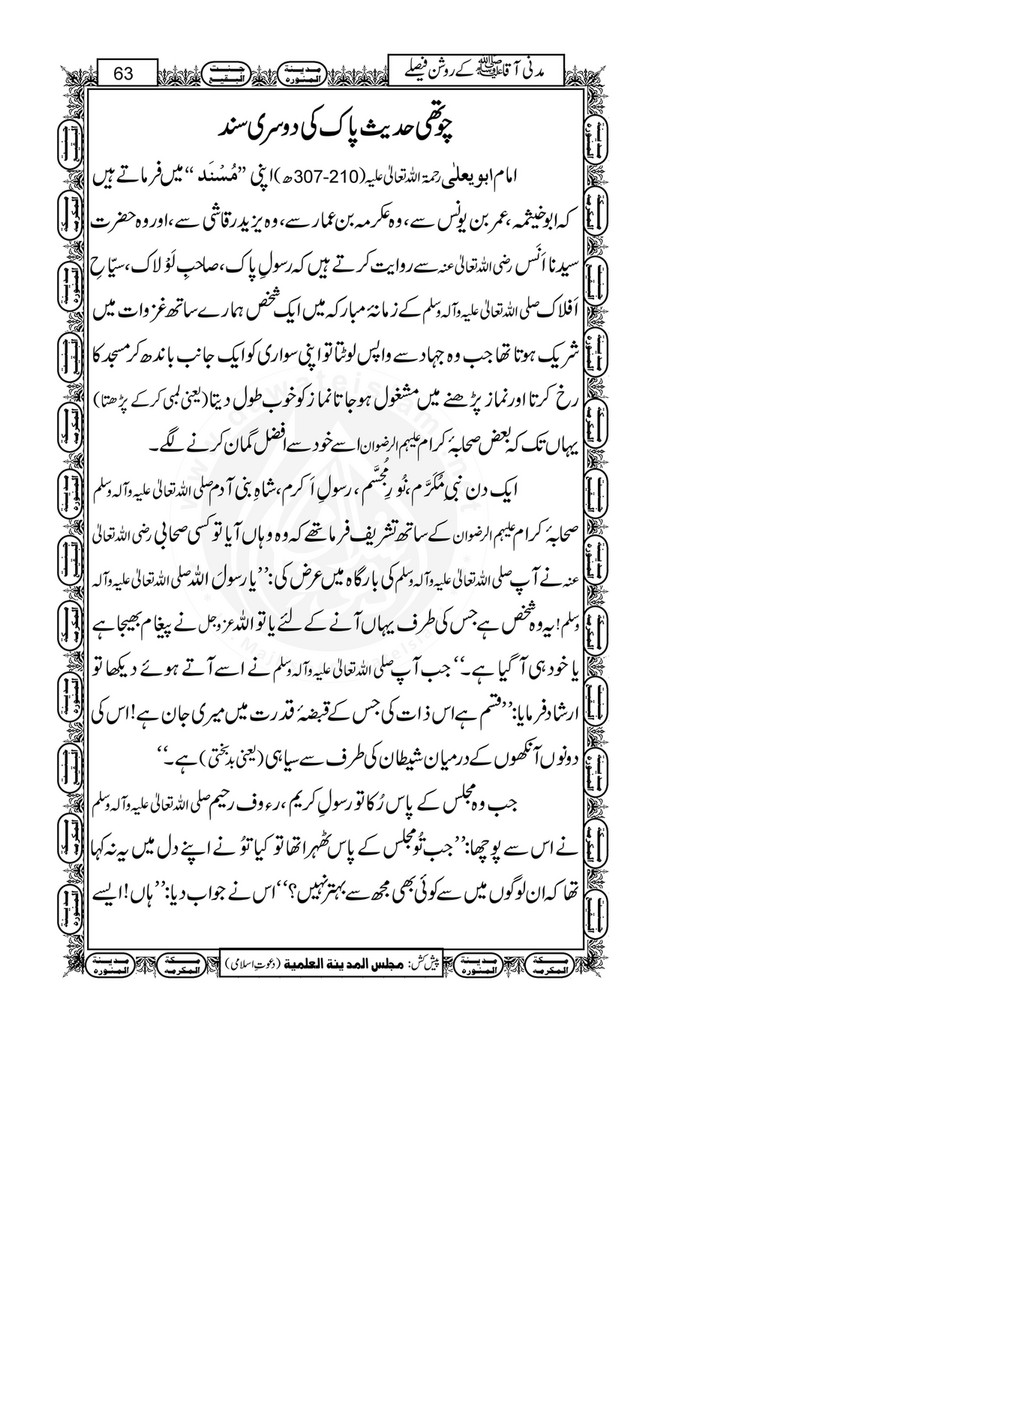 مدنی آقا ﷺ کے روشن فیصلے
63
چوتھی حدیث پاک کی دوسری سند
امام ابو یعلٰی رحمۃ اللہ تعالیٰ علیہ (210-307ھ) اپنی ”مُسْنَد“ میں فرماتے ہیں
کہ ابوخیثمہ، عمر بن یونس سے، وہ عکرمہ بن عمار سے، وہ یزید رقاشی سے، اور وہ حضرت
سیدنا انَس رضی اللہ تعالیٰ عنہ سے روایت کرتے ہیں کہ رسولِ پاک، صاحبِ لَوْلاک، سیّاحِ
اَفلاک صلی اللہ تعالیٰ علیہ وآلہ وسلم کے زمانۂ مبارکہ میں ایک شخص ہمارے ساتھ غزوات میں
شریک ہوتا تھا جب وہ جہاد سے واپس لوٹتا تو اپنی سواری کو ایک جانب باندھ کر مسجد کا
رخ کرتا اور نماز پڑھنے میں مشغول ہو جاتا نماز کو خوب طول دیتا (یعنی لمبی کرکے پڑھتا)
یہاں تک کہ بعض صحابۂ کرام علیہم الرضوان اسے خود سے افضل گمان کرنے لگے۔
ایک دن نبیِ مُکَرَّم، نُورِ مُجَسَّم، رسولِ اَکرم، شاہِ بنی آدم صلی اللہ تعالیٰ علیہ وآلہ وسلم
صحابۂ کرام علیہم الرضوان کے ساتھ تشریف فرما تھے کہ وہ وہاں آیا تو کسی صحابی رضی اللہ تعالیٰ
عنہ نے آپ صلی اللہ تعالیٰ علیہ وآلہ وسلم کی بارگاہ میں عرض کی: ’’یا رسولَ اللہ صلی اللہ تعالیٰ علیہ وآلہ
وسلم! یہ وہ شخص ہے جس کی طرف یہاں آنے کے لئے یا تو اللہ عزوجل نے پیغام بھیجا ہے
یا خود ہی آ گیا ہے۔‘‘ جب آپ صلی اللہ تعالیٰ علیہ وآلہ وسلم نے اسے آتے ہوئے دیکھا تو
ارشاد فرمایا: ’’قسم ہے اس ذات کی جس کے قبضۂ قدرت میں میری جان ہے! اس کی
دونوں آنکھوں کے درمیان شیطان کی طرف سے سیاہی (یعنی بدبختی) ہے۔‘‘
جب وہ مجلس کے پاس رُکا تو رسولِ کریم، رءوف رحیم صلی اللہ تعالیٰ علیہ وآلہ وسلم
نے اس سے پوچھا: ’’جب تُو مجلس کے پاس ٹھہرا تھا تو کیا تُو نے اپنے دل میں یہ نہ کہا
تھا کہ ان لوگوں میں سے کوئی بھی مجھ سے بہتر نہیں؟‘‘ اس نے جواب دیا: ’’ہاں! ایسے
پیش کش: مجلس المدینۃ العلمیۃ (دعوتِ اسلامی)